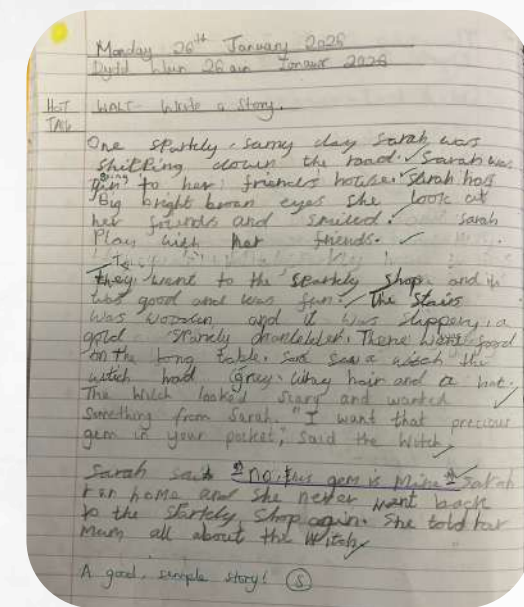 Monday 26th January 2026
Dydd Llun 26ain Ionawr 2026
HOT TASK
WALT- Write a Story.
One sparkly, sunny day Sarah was
skipping down the road. Sarah was
going to her friends house. Sarah has
Big bright brown eyes she look at
her friends and smiled. Sarah
Play with her friends.
They went to the sparkly shop and it
was good and was fun. The stairs
was wooden and it was slippery, a
gold sparkly chandelier. There want food
on the long table. see a witch the
witch had grey hair and a hat.
The Witch looked scary and wanted
something from Sarah. "I want that precious
gem in your pocket," said the Witch
Sarah said "no, this gem is Mine" Sarah
ran home and she never want back
to the sparkly shop again. She told her
mum all about the witch
A good, simple story! S